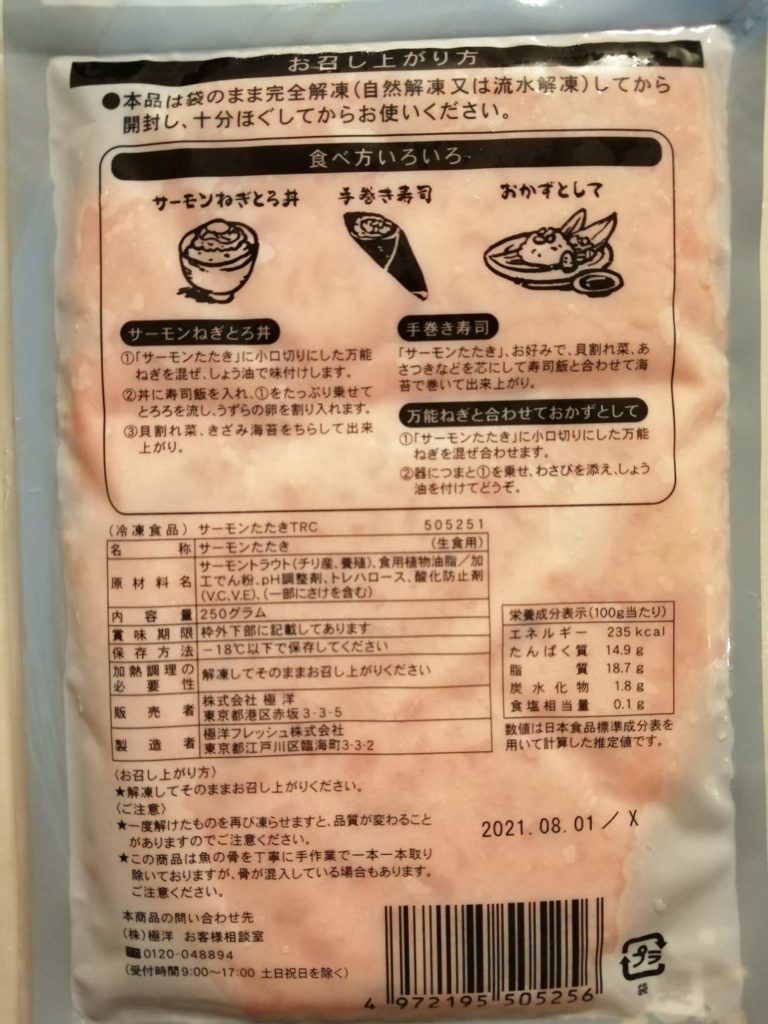 お召し上がり方
●本品は袋のまま完全解凍(自然解凍又は流水解凍)してから
開封し、十分ほぐしてからお使いください。
食べ方いろいろ
サーモンねぎとろ丼
手巻き寿司
おかずとして
サーモンねぎとろ丼
①「サーモンたたき」に小口切りにした万能
ねぎを混ぜ、しょう油で味付けします。
②丼に寿司飯を入れ、①をたっぷり乗せて
とろろを流し、うずらの卵を割り入れます。
③貝割れ菜、きざみ海苔をちらして出来
上がり。
手巻き寿司
「サーモンたたき」、お好みで、貝割れ菜、あ
さつきなどを芯にして寿司飯と合わせて海
苔で巻いて出来上がり。
万能ねぎと合わせておかずとして
①「サーモンたたき」に小口切りにした万能
ねぎを混ぜ合わせます。
②器につまと①を乗せ、わさびを添え、しょう
油を付けてどうぞ。
(冷凍食品) サーモンたたきTRC 505251
名称 サーモンたたき (生食用)
原材料名 サーモントラウト(チリ産、養殖)、食用植物油脂/加
工でん粉、pH調整剤、トレハロース、酸化防止剤
(V.C、V.E)、(一部にさけを含む)
内容量 250グラム
賞味期限 枠外下部に記載してあります
保存方法 −18℃以下で保存してください
加熱調理の必要性 解凍してそのままお召し上がりください
販売者 株式会社 極洋
東京都港区赤坂3-3-5
製造者 極洋フレッシュ株式会社
東京都江戸川区臨海町3-3-2
栄養成分表示(100g当たり)
エネルギー 235kcal
たんぱく質 14.9g
脂質 18.7g
炭水化物 1.8g
食塩相当量 0.1g
数値は日本食品標準成分表を
用いて計算した推定値です。
〈お召し上がり方〉
★解凍してそのままお召し上がりください。
〈ご注意〉
★一度解けたものを再び凍らせますと、品質が変わること
がありますのでご注意ください。
★この商品は魚の骨を丁寧に手作業で一本一本取り
除いておりますが、骨が混入している場合もあります。
ご注意ください。
2021.08.01/X
本商品の問い合わせ先
(株)極洋 お客様相談室
0120-048894
(受付時間9:00〜17:00 土日祝日を除く)
4 972195 505256
プラ
袋